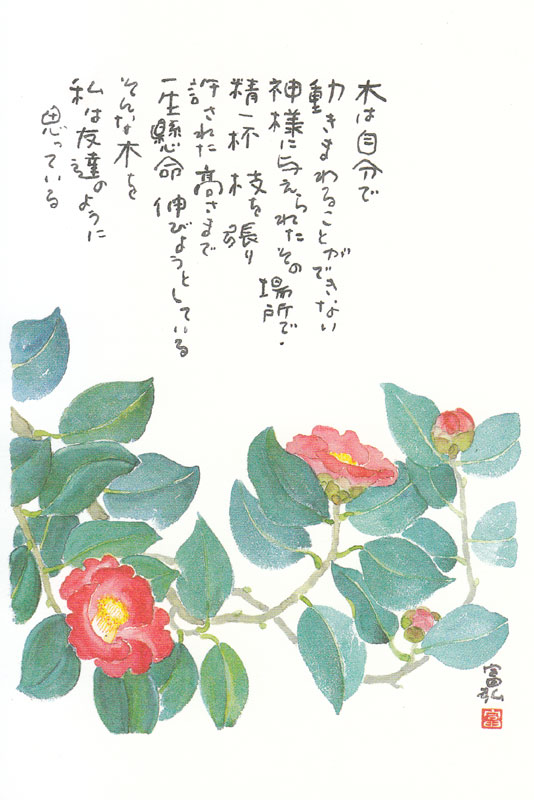 木は自分で
動きまわることができない
神様に与えられたその
場所で
精一杯 枝を張り
許された高さまで
一生懸命 伸びようとしている
そんな木を
私は友達のように
思っている
富弘